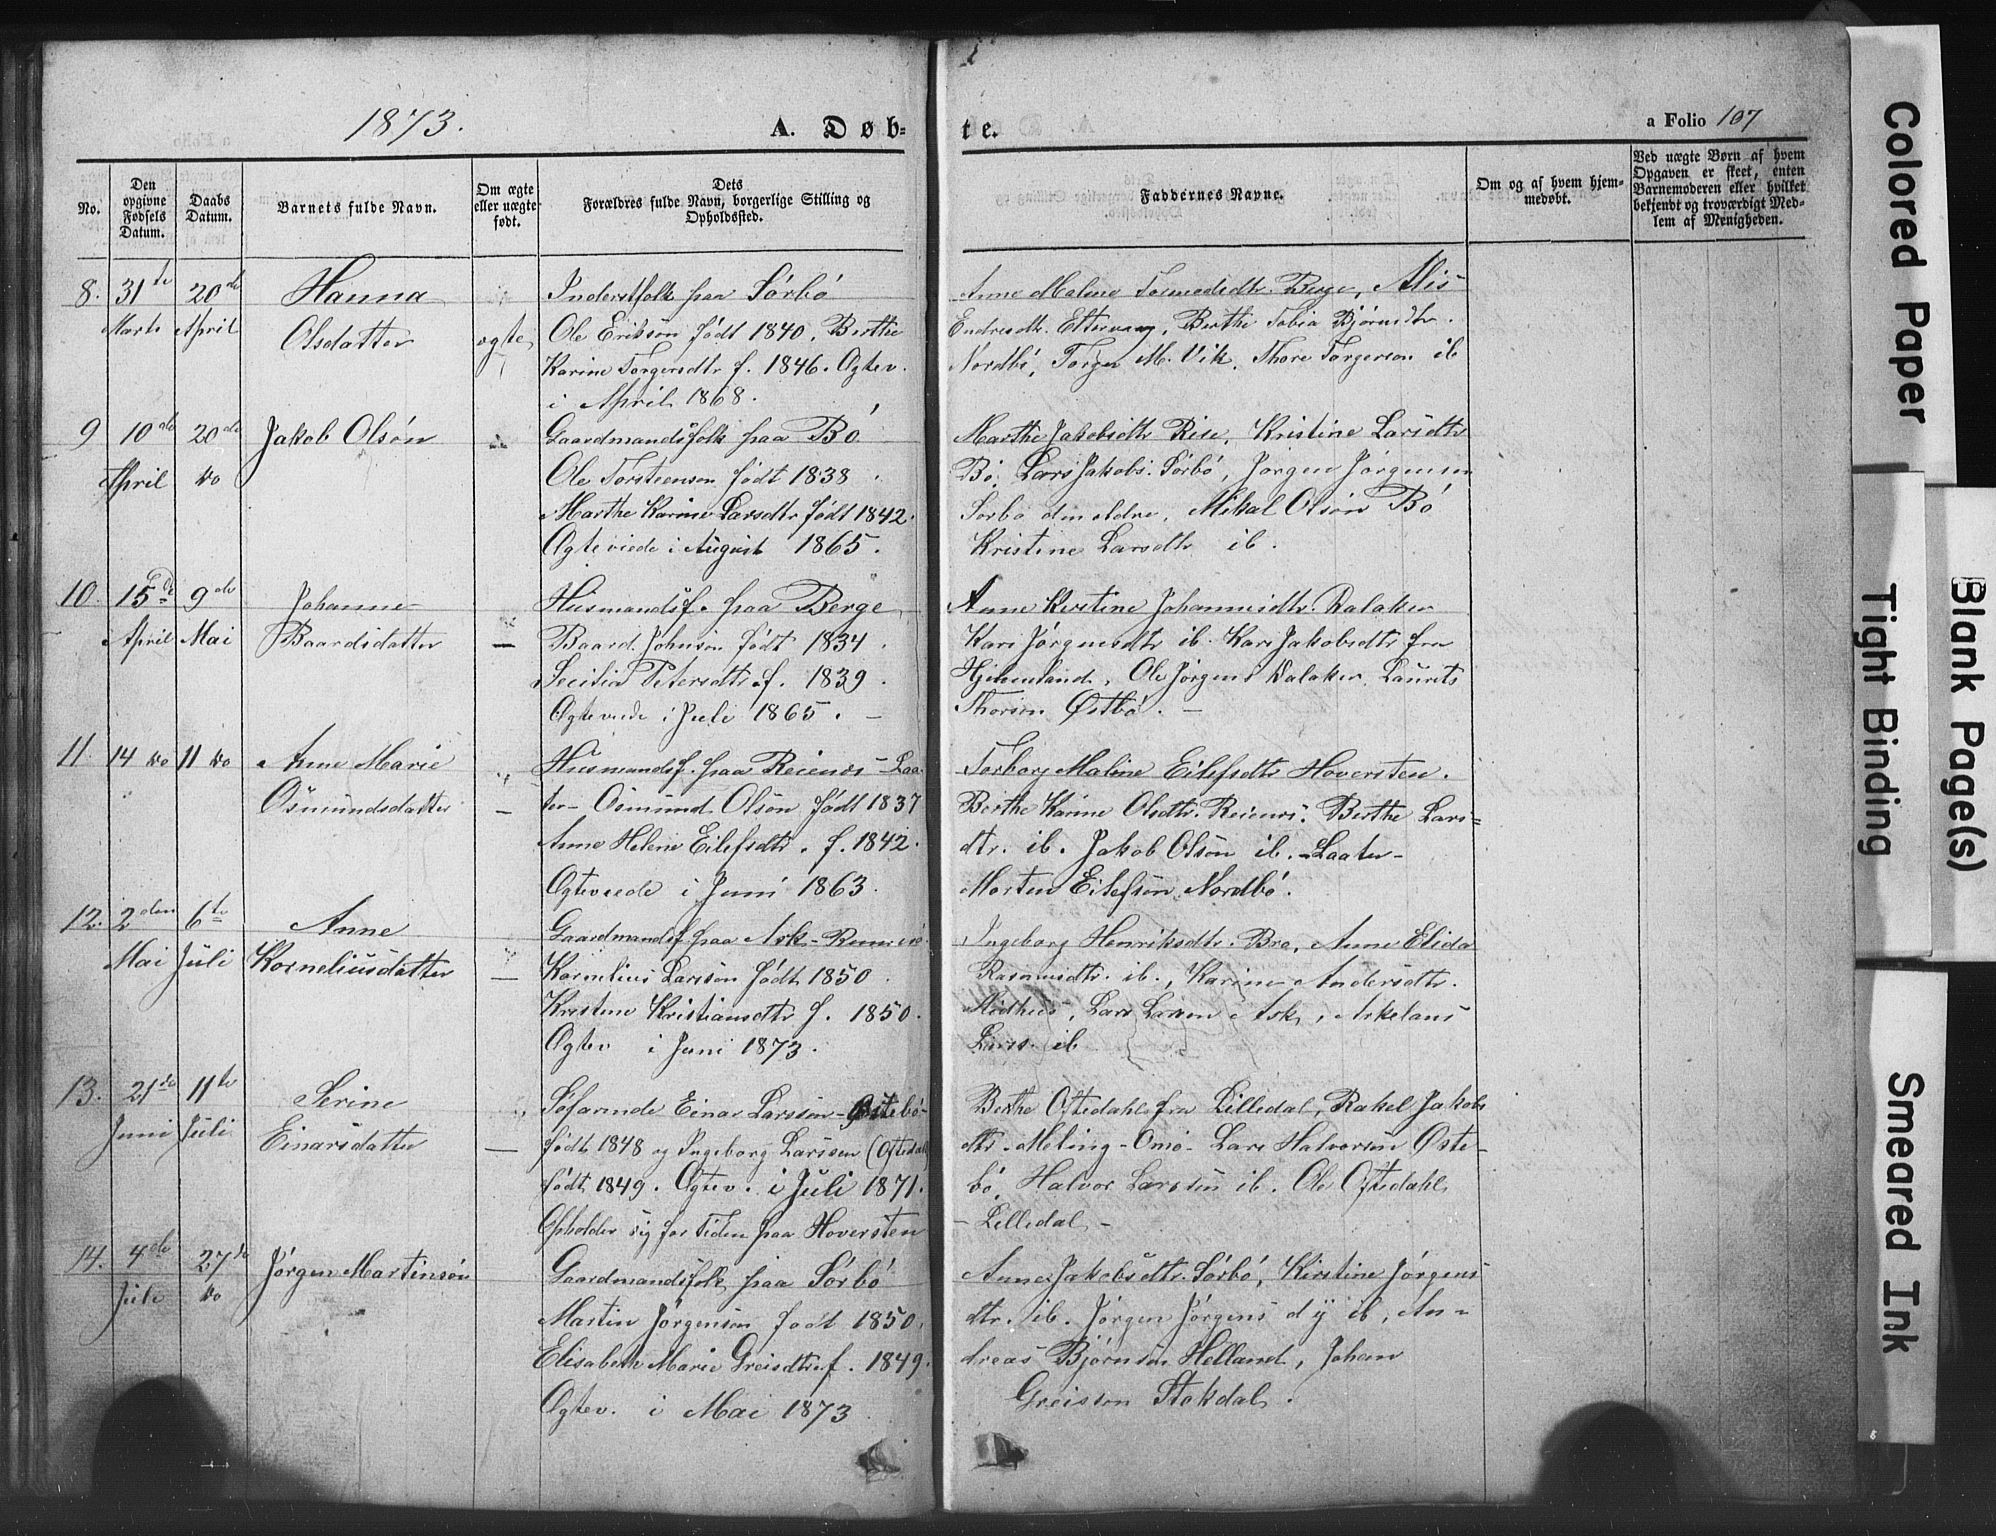 1873.
A. Døb=
te.
a Folio 107
No.
Den opgivne Fødsels Datum.
Daabs Datum.
Barnets fulde Navn.
Om ægte eller uægte født.
Dets
Forældres fulde Navn, borgerlige Stilling og
Opholdssted.
Faddernes Navne.
Om og af hvem hjem-
medøbt.
Ved uægte Børn af hvem
Opgaven er skeet, enten
Barnemoderen eller hvilket
bekjendt og troværdigt Med-
lem af Menigheden.
8. 31te 20de Hanna
Marts April Olsdatter ægte
Inderstfolk paa Sørbø
Ole Erikson født 1840. Berthe
Karine Torgersdtr f. 1846. Ægtev.
i April 1868.
Anne Maline Tormodsdtr. Berge, Alis
Endresdtr. Ettervaag, Berthe Tobia Bjørnsdtr.
Nordbø, Torger M. Vik. Thore Torgerson ib
9 10de 20de Jakob Olsøn
April do
Gaardmandsfolk paa Bø
Ole Torsteenson født 1838
Marthe Karine Larsdtr født 1842.
Ægteviede i August 1865.
Marthe Jakobsdtr Rise, Kristine Larsdtr
Bø. Lars Jakobs. Sørbø, Jørgen Jørgensen
Sørbø den Ældre, Mikal Olsøn Bø
Kristine Larsdtr ib.
10. 15de 9de Johanne
April Mai Baardsdatter —
Husmandsf. paa Berge
Baard Johnson født 1834.
Secilia Petersdtr f. 1839.
Ægteviede i Juli 1865. —
Anne Kirstine Johannesdtr. Dalaker
Kari Jørgensdtr ib. Kari Jakobsdtr fra
Hjelmeland, Ole Jørgens Dalaker, Laurits
Thorsen Østbø. —
11. 14 do 11 do Anne Marie
Osmundsdatter —
Husmandsf. paa Reienes-Laa-
ter- Osmund Olsøn født 1837
Anne Helene Eilefsdtr. f. 1842.
Ægteviede i Juni 1863.
Torborg Maline Eilefsdtr Hoversten.
Berthe Karine Olsdtr. Reienes. Berthe Lars=
dtr. ib. Jakob Olsøn ib. -Laater-
Morten Eilefsøn Nordbø.
12. 2den 6te Anne
Mai Juli Korneliusdatter —
Gaardmandsf paa Ask-
Kornelius Larsøn født 1850.
Kristine Kristiansdtr f. 1850.
Ægtev i Juni 1873.
Ingeborg Henriksdtr. Bro, Anne Elida
Rasmusdtr. ib., Karine Andersdtr.
Lars Larsen Ask, Askelaus
Larss. ib
13. 21de 11te Serine
Juni Juli Einarsdatter —
Søfarende Einar Larsson-Østebø
født 1848 og Ingeborg Larssen (Oftedal)
født 1849. Ægtev. i Juli 1871.
Opholder sig for Tiden paa Hoversten
Berthe Oftedahl fra Lilledal, Rakel Jakobs
dtr. Meling-Omø- Lars Halvorsøn Øste-
bø, Halvor Larssøn ib. Ole Oftedahl
-Lilledal-
14. 4de 27de Jørgen Martinsøn
Juli do
Gaardmandsfolk paa Sørbø
Martin Jørgenson født 1850.
Elisabeth Marie Greisdtr f. 1849.
Ægtev. i Mai 1873
Anne Jakobsdtr. Sørbø, Kirstine Jørgens
dtr. ib. Jørgen Jørgens dy ib, An-
dreas Bjørnsen Helland, Johan
Greisson Stokdal.
Colored Paper
Tight Binding
Blank Page(s)
Smeared Ink